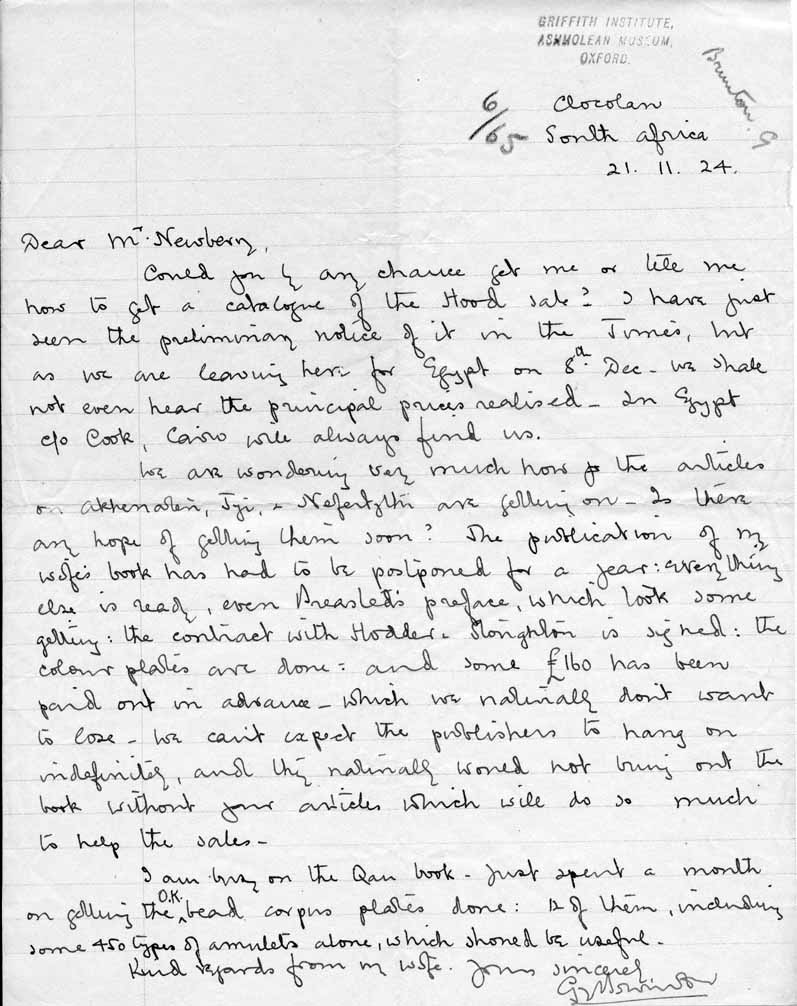 GRIFFITH INSTITUTE,
ASHMOLEAN MUSEUM,
OXFORD.
Brunton. G
6/65
Clocolan
South Africa
21. 11. 24.
Dear Mr. Newberry,
Could you by any chance get me or tell me
how to get a catalogue of the Hood sale? I have just
seen the preliminary notice of it in the Times, but
as we are leaving here for Egypt on 8th Dec - we shall
not even hear the principal prices realised - In Egypt
c/o Cook, Cairo will always find us.
We are wondering very much how the articles
on Akhenaten, Tyi, & Nefertythi are getting on - Is there
any hope of getting them soon? The publication of my
wife's book has had to be postponed for a year: everything
else is ready, even Breasted's preface, which took some
getting: the contract with Hodder & Stoughton is signed: the
colour plates are done: and some £160 has been
paid out in advance - which we naturally don't want
to lose - we can't expect the publishers to hang on
indefinitely, and they naturally would not bring out the
book without your articles which will do so much
to help the sales -
I am busy on the Qau book - just spent a month
on getting the O.K. bead corpus plates done: 12 of them, including
some 450 types of amulets alone, which should be useful.
Kind regards from my wife. Yours sincerely
G Brunton